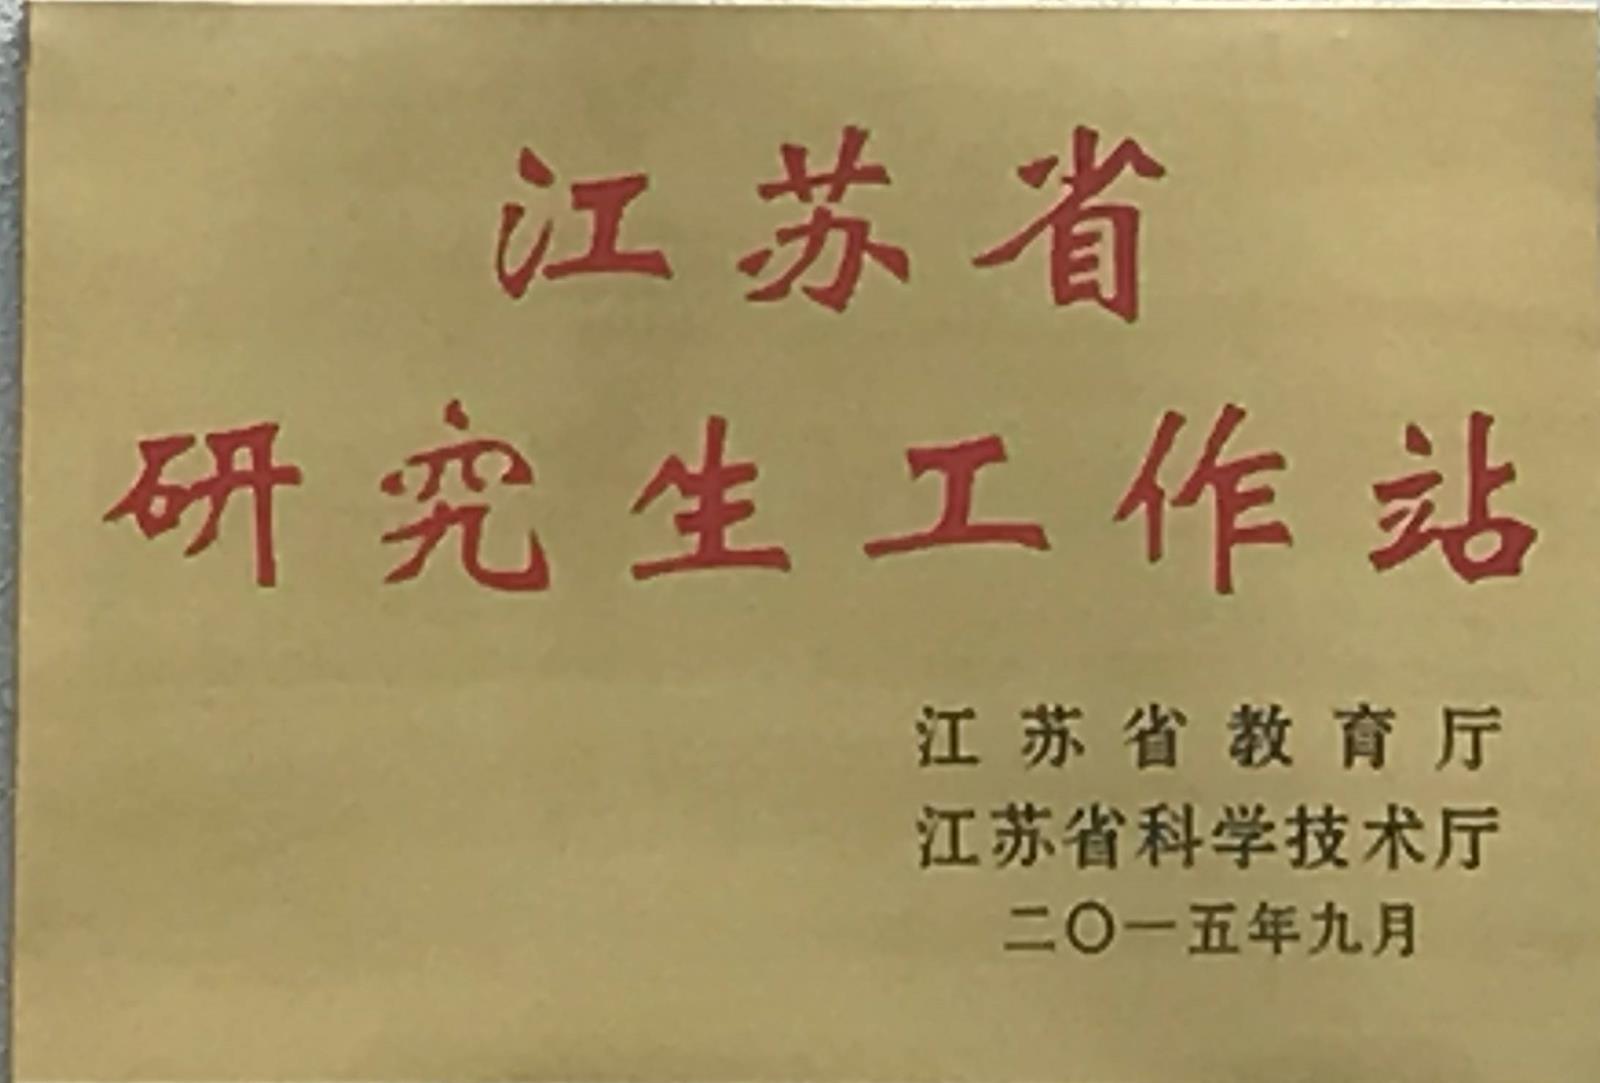 江苏省
研究生工作站
江苏省教育厅
江苏省科学技术厅
二〇一五年九月